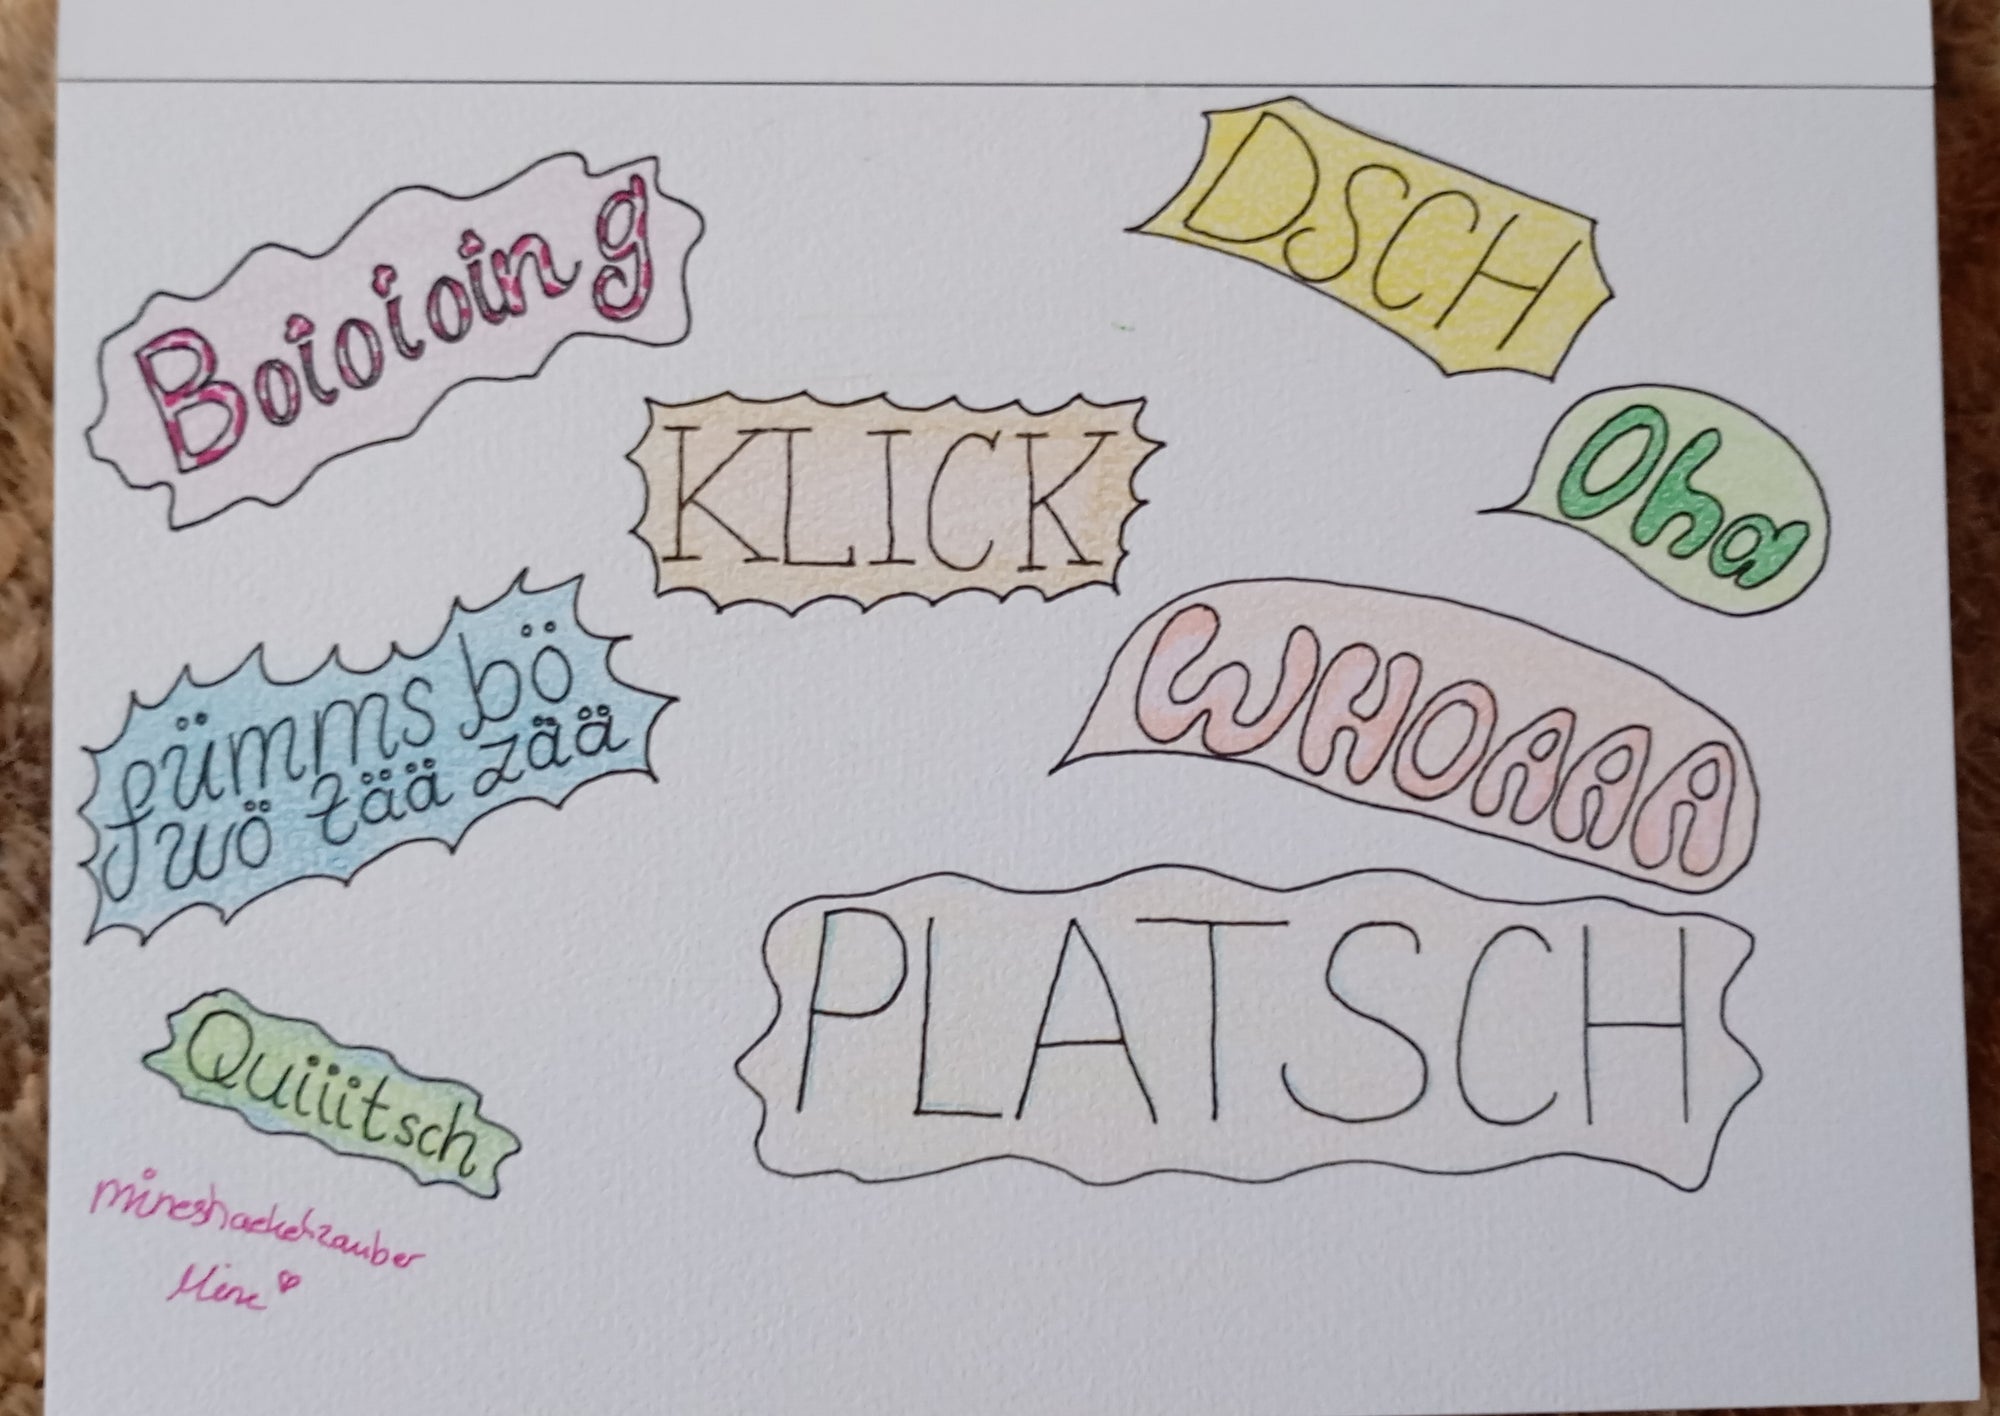 Boioioing
DSCH
KLICK
Oha
fümms bö
wö zää zää
WHOAAA
PLATSCH
Quiiitsch
mineshaekelzauber
Mine